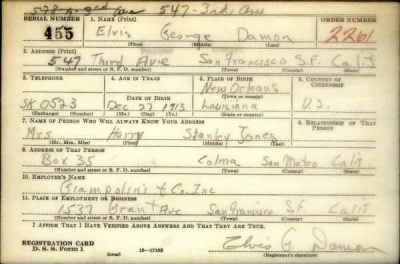 598-A-3rd Ave 547-3rd Ave
SERIAL NUMBER 1. NAME (Print)
455 Elvis George Damon 2261
(First) (Middle) (Last)
2. ADDRESS (Print)
547 Third Ave San Francisco S.F. Calif
(Number and street or R. F. D. number) (Town) (County) (State)
3. TELEPHONE 4. AGE IN YEARS 5. PLACE OF BIRTH 6. COUNTRY OF CITIZENSHIP
New Orleans
SK 0523 Dec 27 1913 Louisiana U.S.
(Exchange) (Number) (Mo.) (Day) (Yr.) (State or country)
7. NAME OF PERSON WHO WILL ALWAYS KNOW YOUR ADDRESS 8. RELATIONSHIP OF THAT PERSON
Mrs Harry Stanley Jones
(Mr., Mrs., Miss) (First) (Middle) (Last)
9. ADDRESS OF THAT PERSON
Box 35 Colma San Mateo Calif
(Number and street or R. F. D. number) (Town) (County) (State)
10. EMPLOYER'S NAME
Giampolini & Co. Inc
11. PLACE OF EMPLOYMENT OR BUSINESS
1537 Grant Ave San Francisco SF Calif
(Number and street or R. F. D. number) (Town) (County) (State)
I AFFIRM THAT I HAVE VERIFIED ABOVE ANSWERS AND THAT THEY ARE TRUE.
REGISTRATION CARD
D. S. S. Form 1 16-17105 Elvis G. Damon
(Registrant's signature)